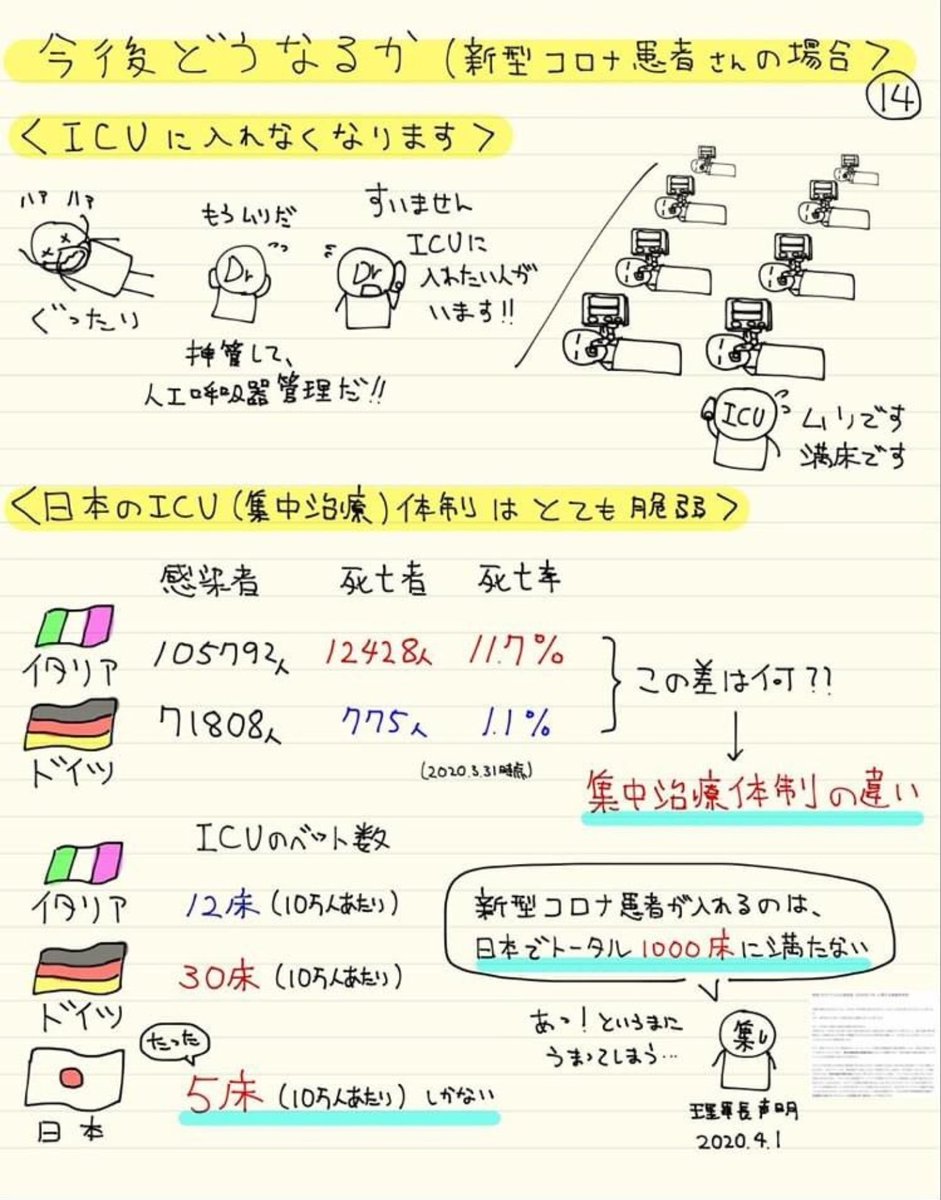 今後どうなるか(新型コロナ患者さんの場合>
14
<ICUに入れなくなります>
ハァ ハァ
ぐったり
もうムリだ
Dr
挿管して、
人工呼吸器管理だ!!
すいません
ICUに
入れたい人が
います!!
Dr
ICU
ムリです
満床です
<日本のICU(集中治療)体制はとても脆弱>
感染者 死亡者 死亡率
イタリア 105792人 12428人 11.7%
ドイツ 71808人 775人 1.1%
(2020.3.31時点)
この差は何??
集中治療体制の違い
ICUのベット数
イタリア 12床(10万人あたり)
ドイツ 30床(10万人あたり)
たった
日本 5床(10万人あたり)しかない
新型コロナ患者が入れるのは、
日本でトータル1000床に満たない
あっ!というまに
うまってしまう…
集し
理事長声明
2020.4.1